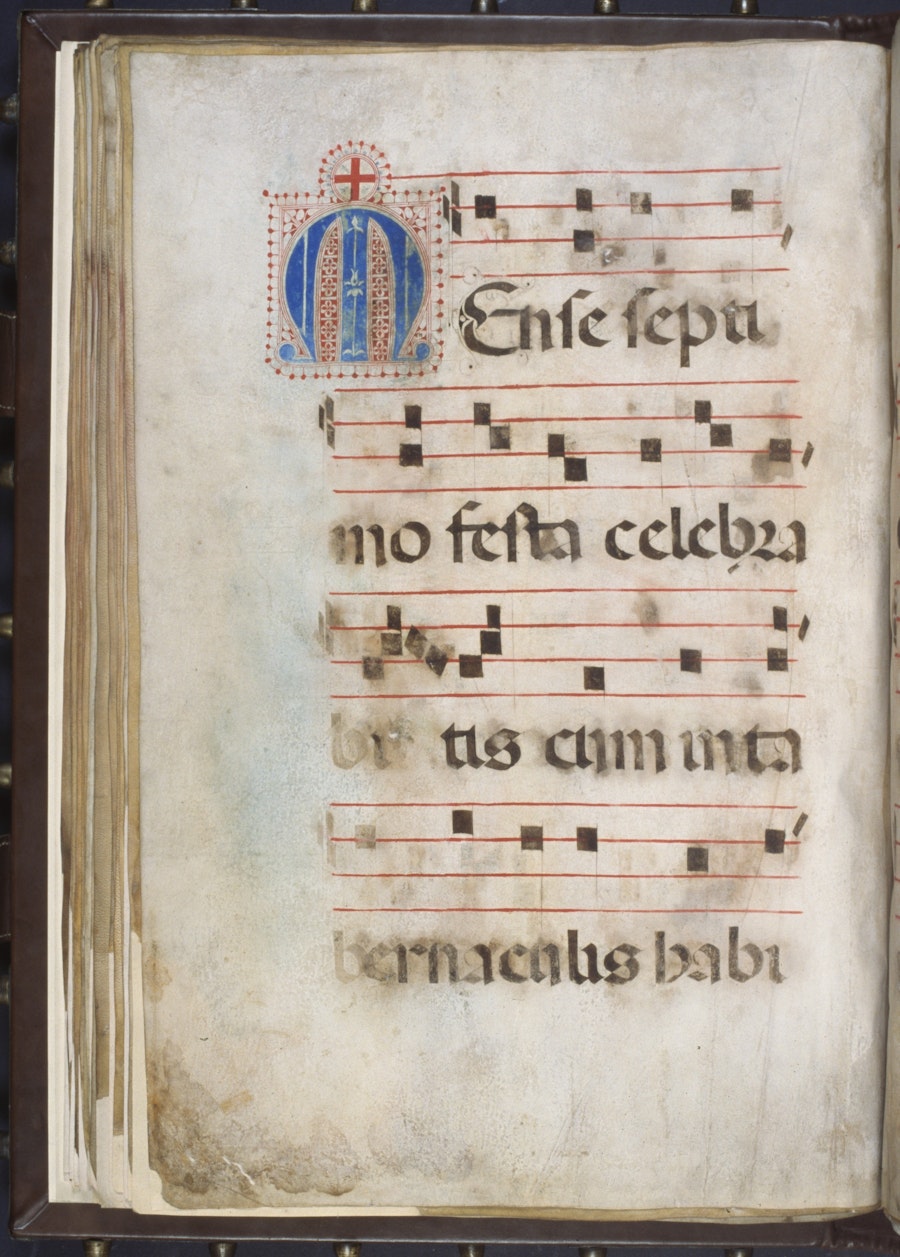 MEnse septi
mo festa celebra
bi tis cum in ta
bernaculis habi